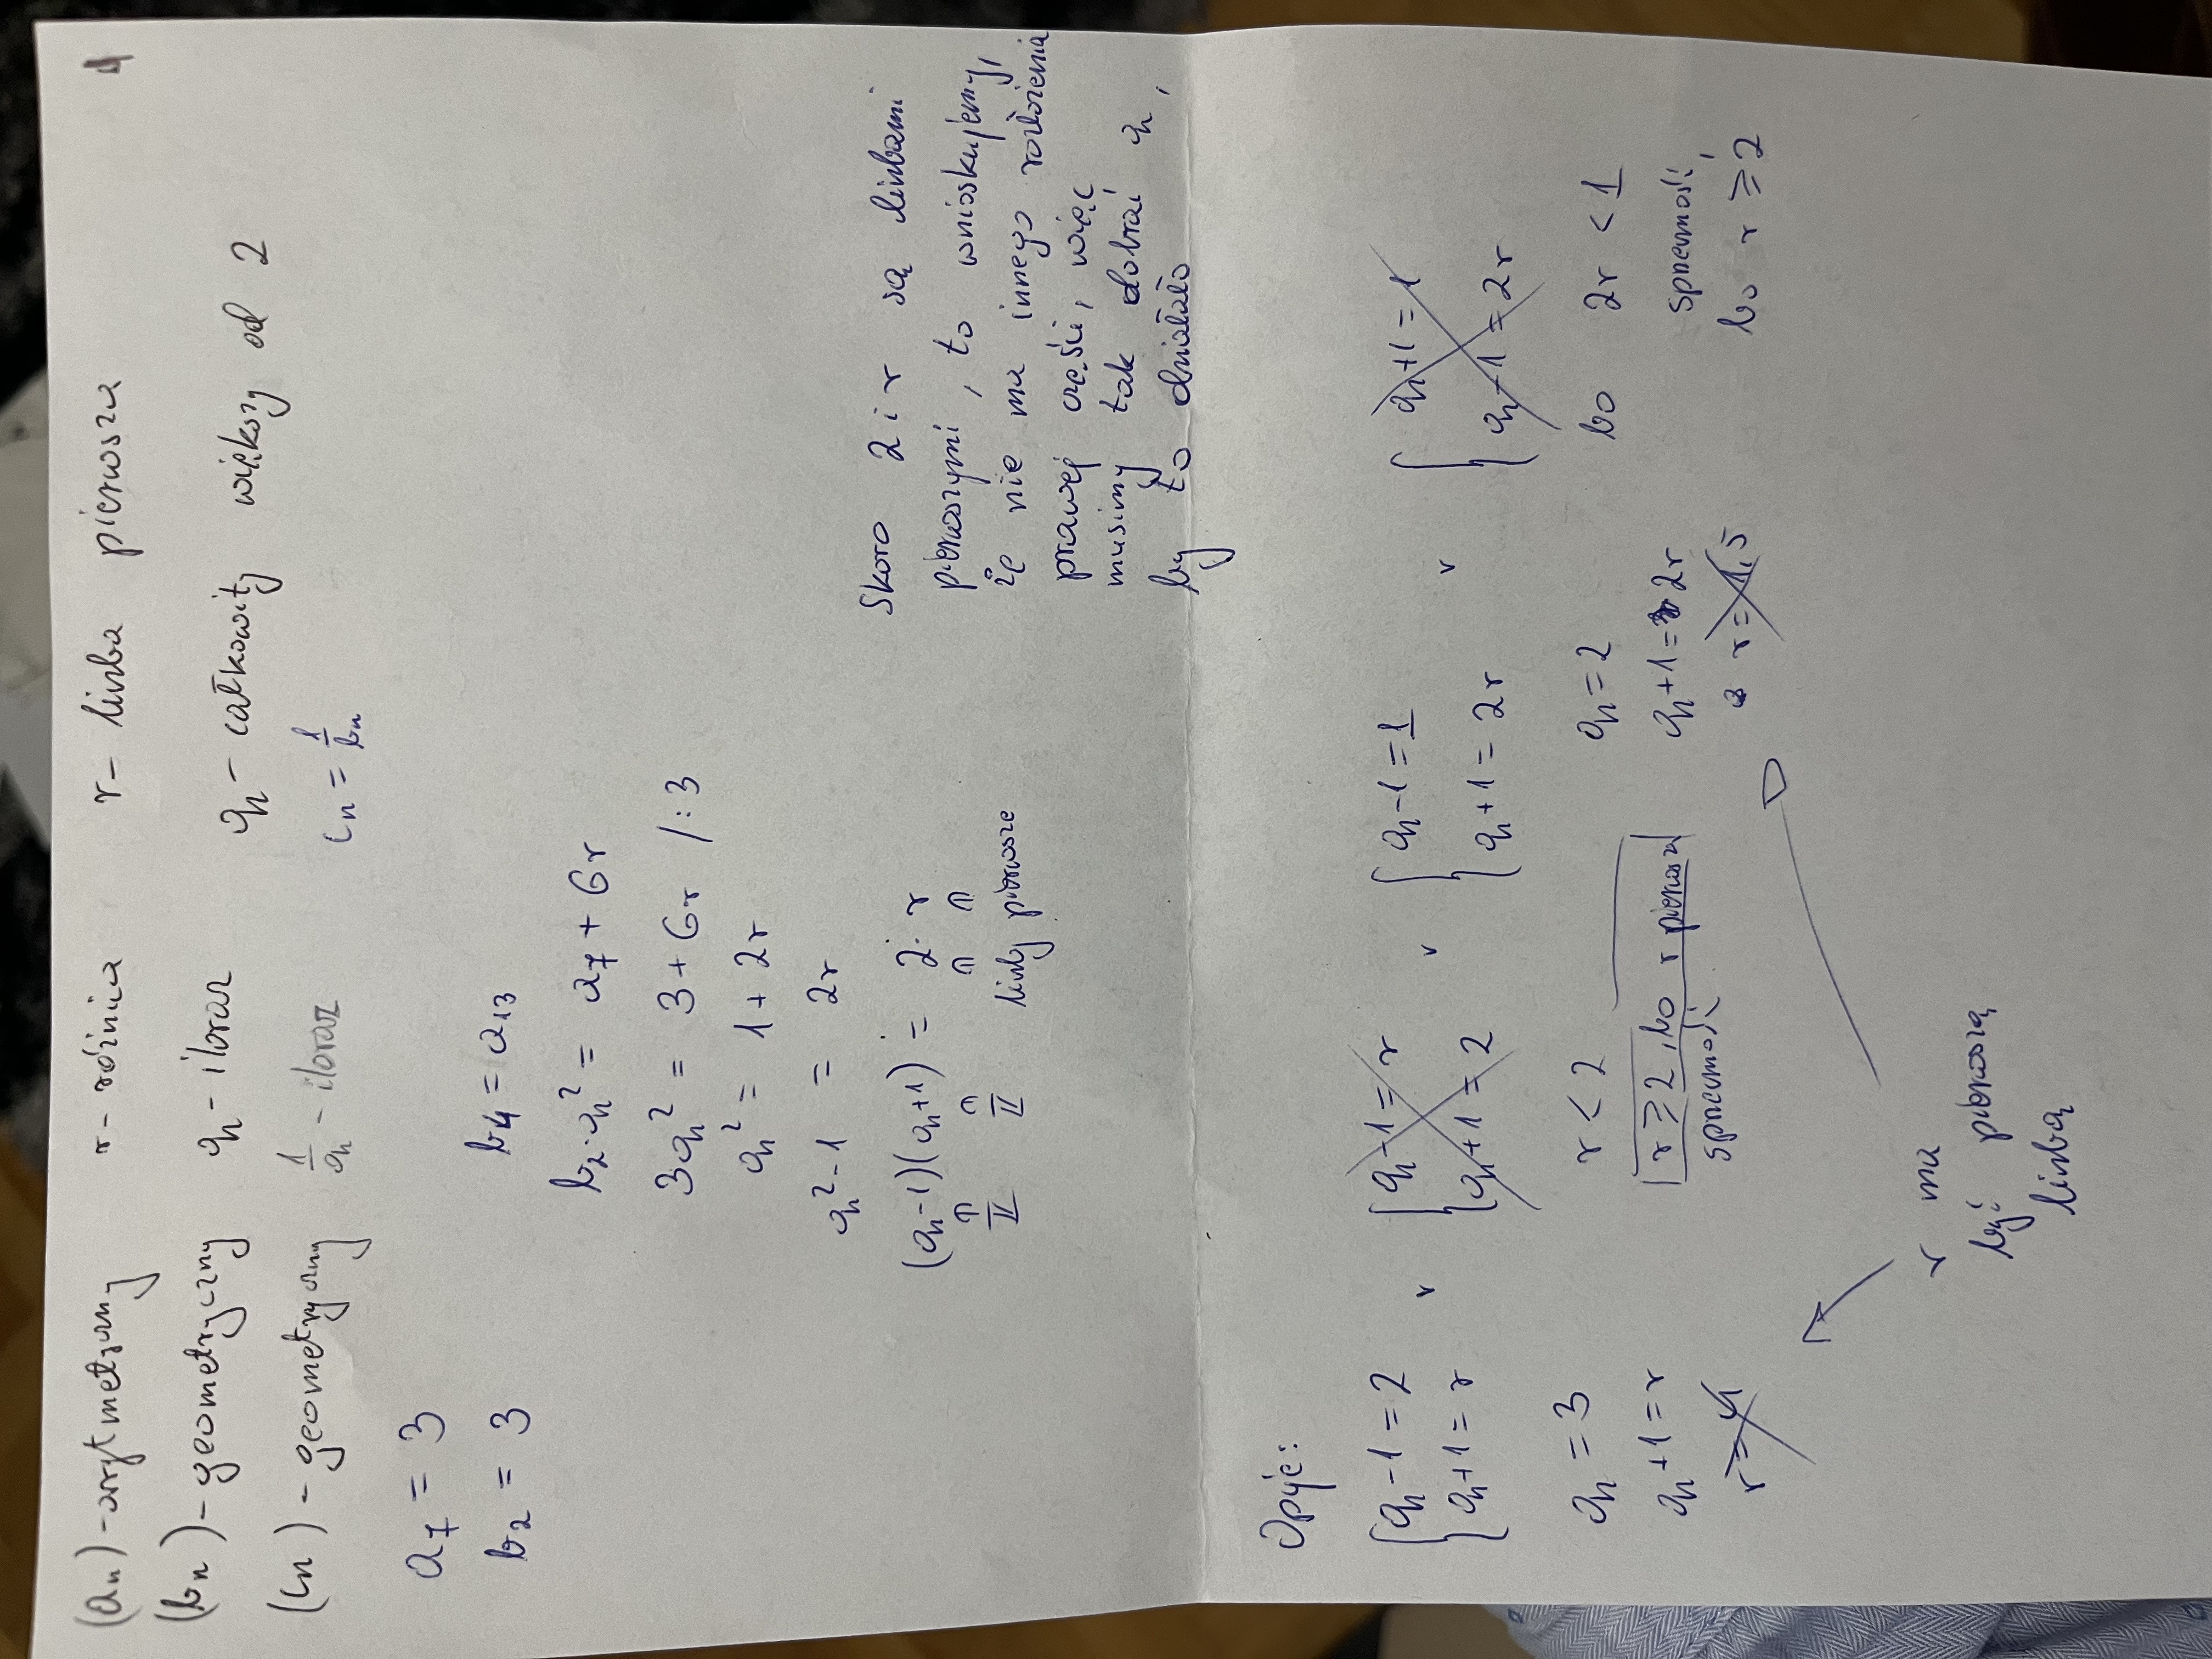 (an) - arytmetyczny r - różnica r - liczba pierwsza
(bn) - geometryczny q - iloraz q - całkowity większy od 2
(cn) - geometryczny 1/q - iloraz cn = 1/bn
a7 = 3
b2 = 3
b4 = a13
b2·q² = a7 + 6r
3q² = 3 + 6r /:3
q² = 1 + 2r
q² - 1 = 2r
(q-1)(q+1) = 2·r
liczby pierwsze
Skoro 2 i r są liczbami
pierwszymi, to wnioskujemy,
że nie ma innego rozłożenia
prawej części, więc
musimy tak dobrać q,
by to działało
Opcje:
{ q-1=2 v { q-1=r v { q-1=1 v { q+1=1
{ q+1=r { q+1=2 { q+1=2r { q-1=2r
q=3 r<2 q=2 bo 2r<1
q+1=r r≥2, bo r pierwsza q+1=2r sprzeczność,
r=4 sprzeczność r=1,5 bo r≥2
r ma
być pierwszą
liczbą